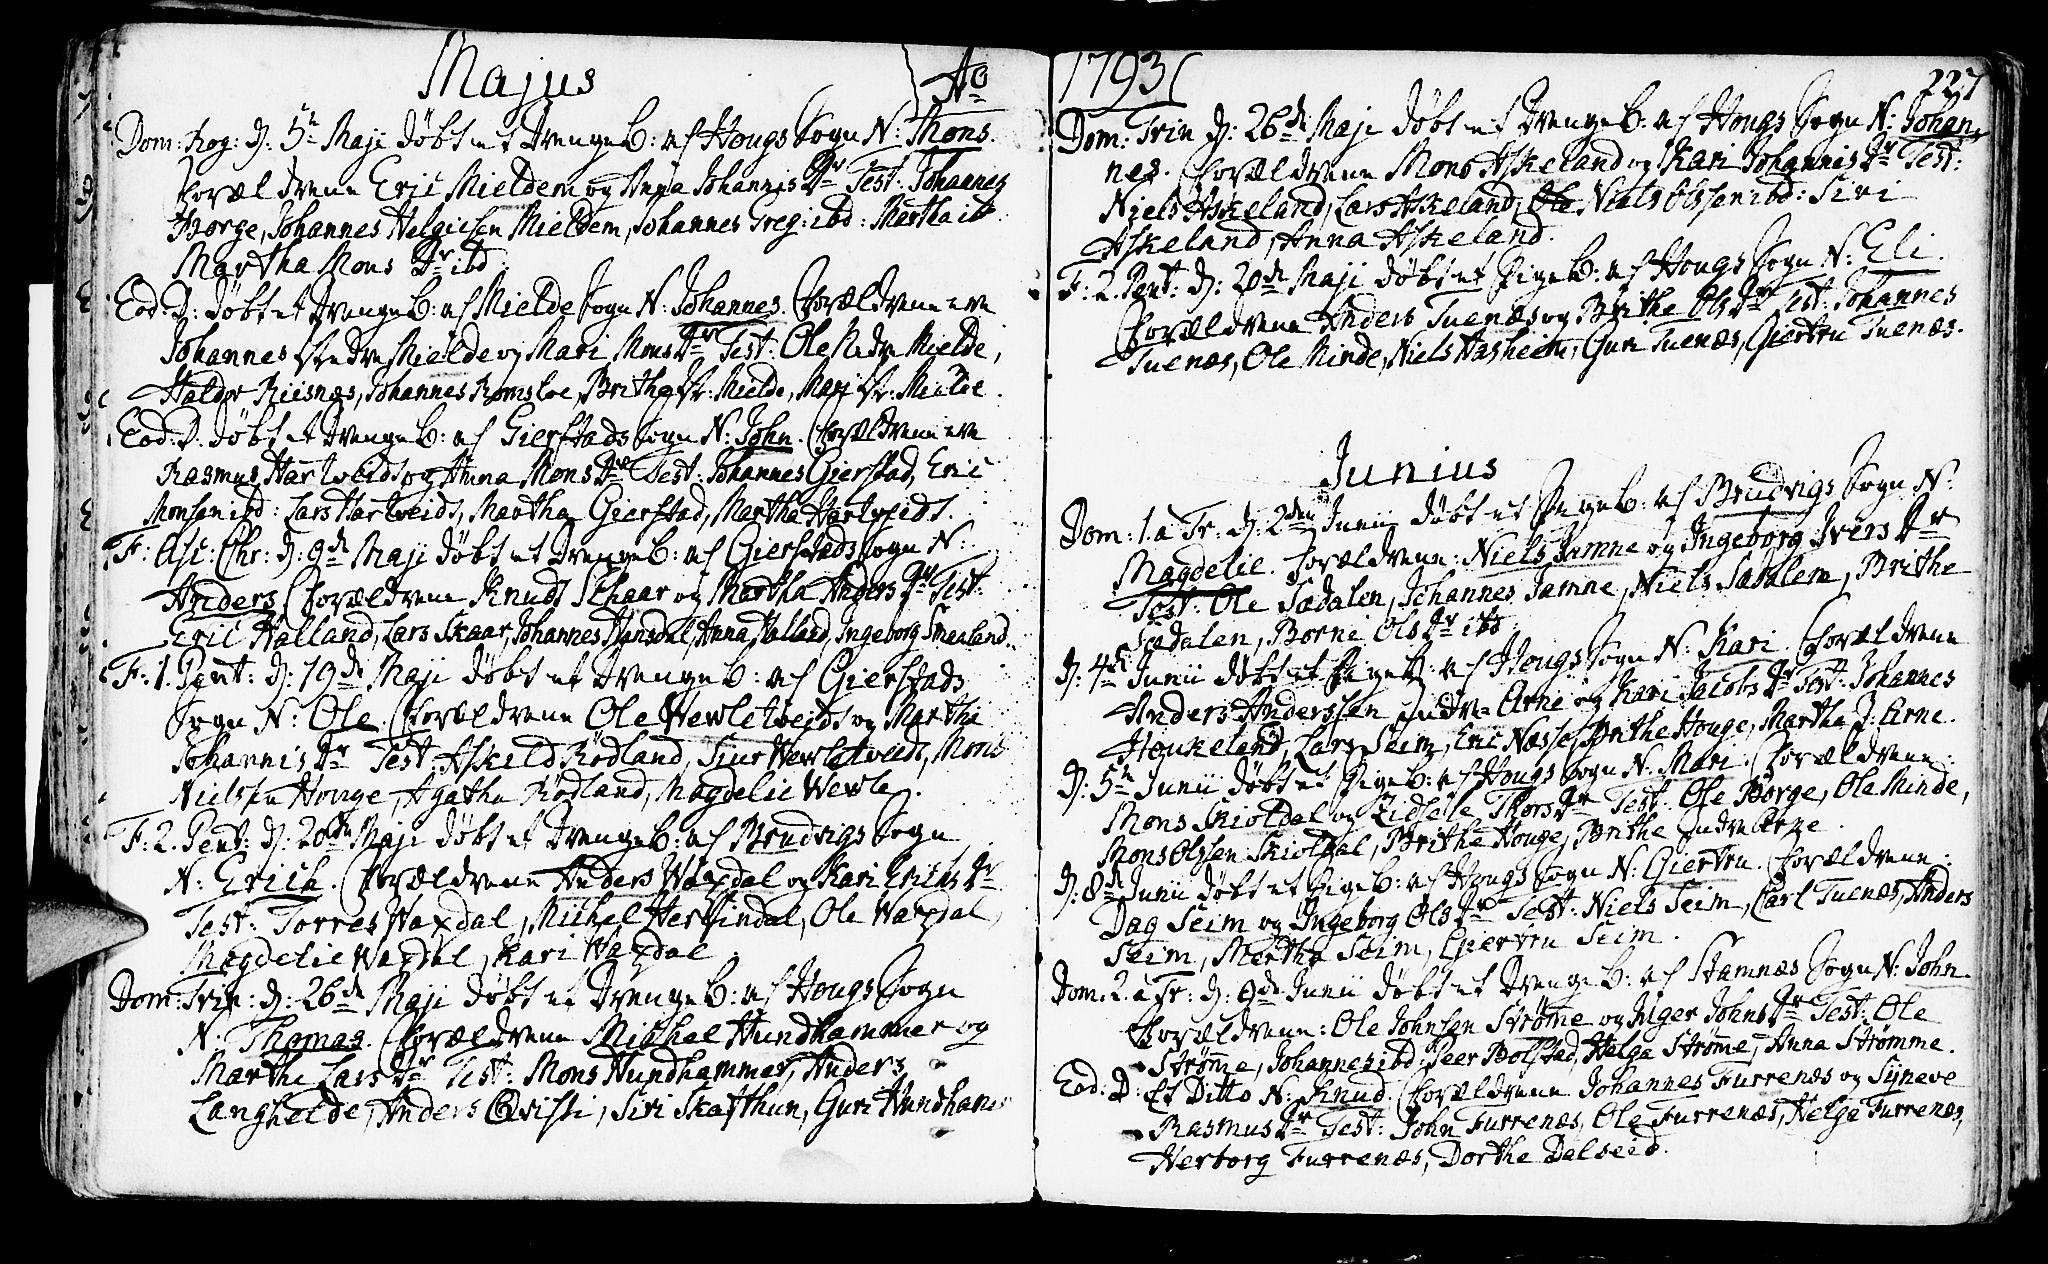 Majus Ao
Dom: Rog: D: 5te Maji døbt et Drenge B: af Hougs Sogn N: Mons.
Forældrene Eric Mieldem og Anna Johannis Dr Test: Johannes
Borge, Johannes Helgiesen Mieldem, Johannes Greg: ibd: Martha ib
Martha Mons Dr ibd
Eod: D: døbt et Drenge B: af Mielde Sogn N: Johannes. Forældrene ere
Johannes Mielde og Mari Mons Dr Test: Ole Nedre Mielde,
Haldor Riisnæs, Johannes Romsloe, Brithe Mielde, Mari Mielde.
Eod: D: døbt et Drenge B: af Gierstads Sogn N: John. Forældrene ere
Rasmus Hartveidt og Anna Mons Dr Test: Johannes Gierstad, Eric
Monsen ibd: Lars Hartveidt, Martha Gierstad, Martha Hartveidt.
F: Asc: Chr: D: 9de Maji døbt et Drenge B: af Gierstads Sogn N:
Anders Forældrene Knud Schaar og Martha Anders Dr Test:
Eric Halland, Lars Skaar, Johannes Hansdal, Anna Halland, Ingeborg Smaaland.
F: 1. Pent: D: 19de Maji døbt et Drenge B: af Gierstads
Sogn N: Ole. Forældrene Ole Wewletveidt og Marthe
Johannis Dr Test: Askild Rødland, Siur Wewletveidt, Mons
Nielssen Houge, Agatha Rødland, Magdelie Wewle.
F: 2. Pent: D: 20de Maji døbt et Drenge B: af Brudvigs Sogn
N: Erich. Forældrene Anders Waxdal og Kari Erichs Dr
Test: Torres Waxdal, Michel Herfindal, Ole Waxdal,
Magdelie Waxdal, Kari Waxdal
Dom: Trin: D: 26de Maji døbt et Drenge B: af Hougs Sogn
N: Thomas. Forældrene Michel Hundhammer og
Marthe Lars Dr Test: Mons Hundhammer, Anders
Langhelde, Anders Qvisti, Siri Skafthun, Guri Hundham
1793 227
Dom: Trin D: 26de Maji døbt et Drenge B: af Hougs Sogn N: Johan,
nes. Forældrene Mons Askeland og Kari Johannis Dr Test:
Niels Askeland, Lars Askeland, Ole Niels Olssen ibd: Siri
Askeland, Anna Askeland.
F: 2. Pent: D: 20de Maji døbt et Pige B: af Hougs Sogn N: Eli.
Forældrene Anders Tuenæs og Brithe Ols Dr Test: Johannes
Tuenæs, Ole Minde, Niels Hasheim, Guri Tuenæs, Giertru Tuenæs.
Junius
Dom: 1. a Tr: D: 2den Junii døbt et Pige B: af Brudvigs Sogn N:
Magdelie. Forældrene: Niels Jamne og Ingeborg Ivers Dr
Test: Ole Sædalen, Johannes Jamne, Niels Sædalem, Brithe
Sædalen, Borni Ols Dr ibd
D: 4de Junii døbt et Pige B: af Hougs Sogn N: Kari. Forældrene
Anders Anderssen Indre Arne og Kari Jacobs Dr Test: Johannes
Houkeland, Lars Seim, Eric Næsse, Brithe Houge, Martha J: Arne.
D: 5te Junii døbt et Pige B: af Hougs Sogn N: Mari. Forældrene:
Mons Skioldal og Zidsele Thors Dr Test: Ole Borge, Ole Minde,
Mons Olssen Skioldal, Brithe Houge, Brithe Indre Arne.
D: 8de Junii døbt et Pige B: af Hougs Sogn N: Giertru. Forældrene:
Dag Seim og Ingeborg Ols Dr Test: Niels Seim, Carl Tuenæs, Anders
Seim, Martha Seim, Giertru Seim.
Dom. 2. a Tr: D: 9de Junii døbt et Drenge B: af Stamnæs Sogn N: John
Forældrene: Ole Johnsen Strøme og Inger Johns Dr Test: Ole
Strøme, Johannes ibd: Peer Bolstad, Helga Strøme, Anna Strømme.
Eod: D: Et Ditto N: Knud. Forældrene Johannes Furrenæs og Syneve
Rasmus Dr Test: John Furrenæs, Ole Furrenæs, Helge Furrenæs,
Herborg Furrenæs, Dorthe Dalseid.